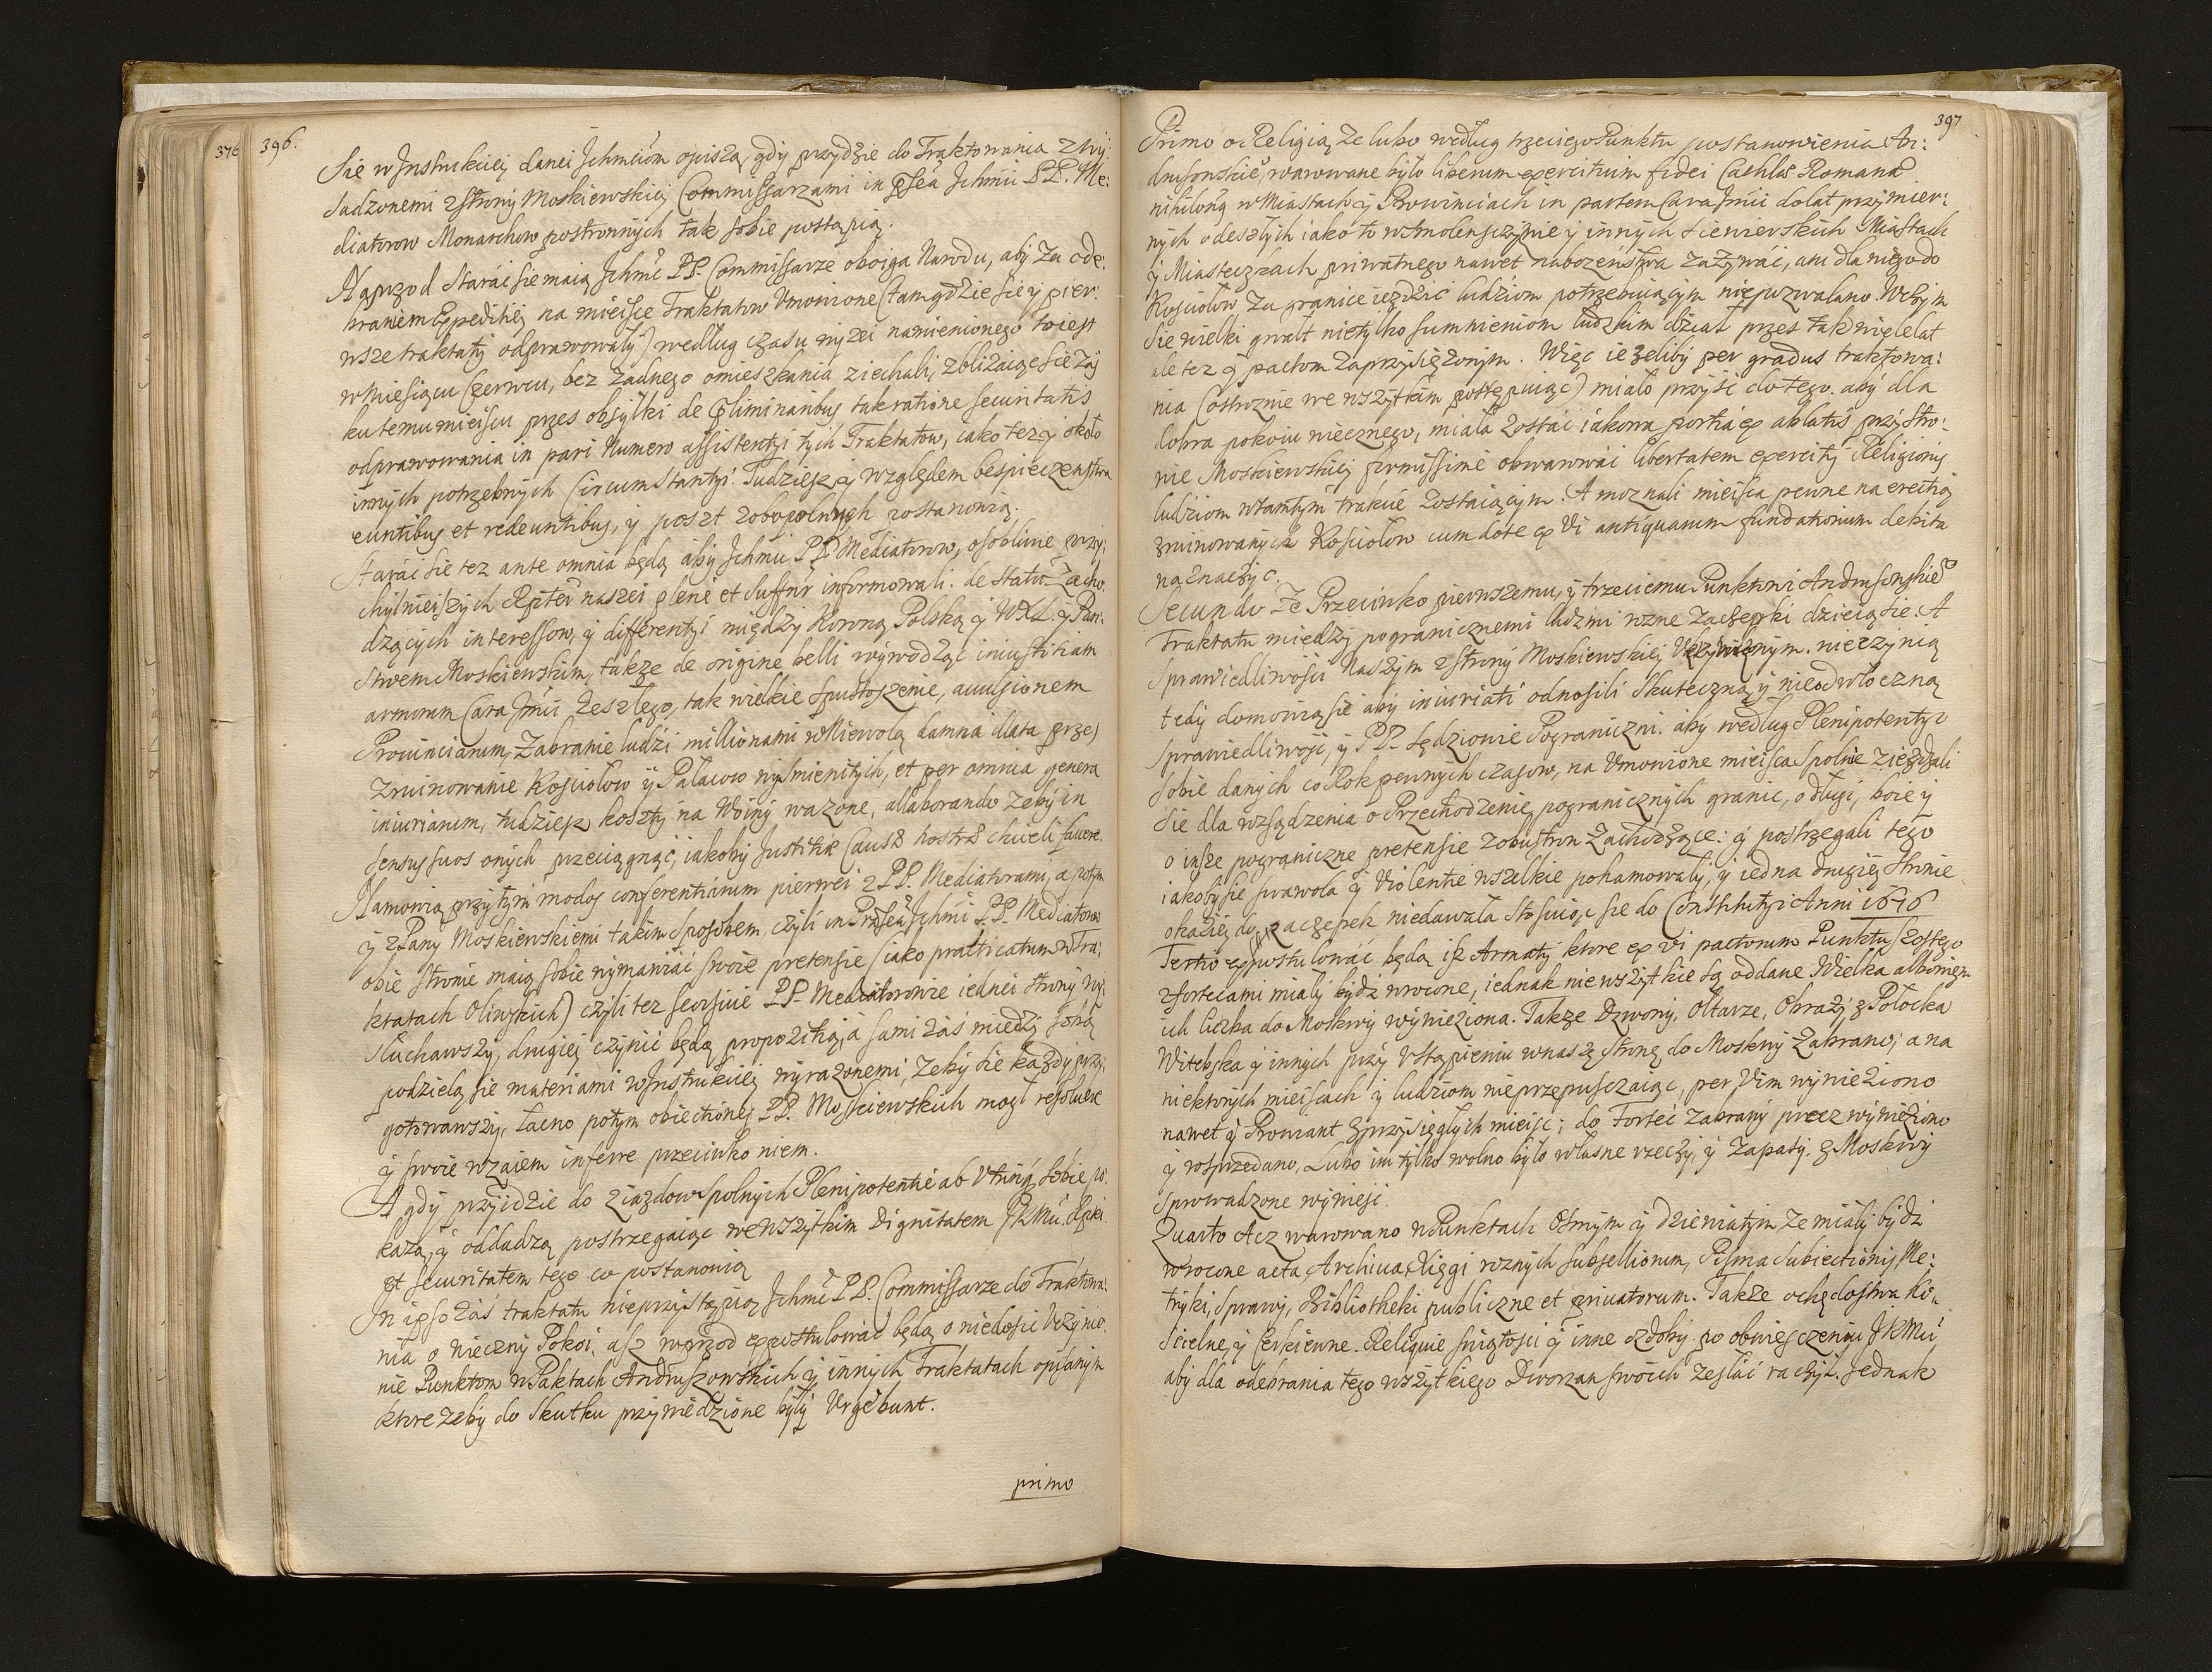 376 396.
Sie w Instrukciej danei Ichmciom opiszą, gdy przydzie do Traktowania z Wy:
sadzonemi z strony Moskiewskiej Commissarzami in Ichmci PP. Me:
diatorow Monarchow postronnych tak sobie postąpią.
Naprzod Starac sie maią Ichmć PP. Commissarze oboiga Narodu, aby za ode:
braniem Expeditiej na mieisce Traktatow Umowione (tam gdzie sie y pier:
wsze traktaty odprawowały) według czasu wyzei namienionego toiest
w Miesiącu Czerwcu, bez zadnego omieszkania ziechali, zblizaiąc sie zaś
ku temu mieiscu przes obsyłki de praeliminaribus tak ratione securitatis
odprawowania in pari Numero assistentyi tych Traktatow, iako tez y około
innych potrzebnych Circumstantyi. Tudziesz y względem bespieczenstwa
euntibus et redeuntibus, y poszt zobopolnych postanowią.
Starac sie tez ante omnia będą aby Ichmci PP. Mediatorow, osobliwie przy:
chylnieiszych Rptei naszei plene et suffnr informowali. de statu zacho:
dzących interessow, y differentyi między Koroną Polską y WXL. y Pan:
stwem Moskiewskim, także de origine belli wywodząc iniustitiam
armorum Cara Jmci Zeszłego, tak wielkie spustoszenie, avulsionem
Provinciarum, Zabranie ludzi millionami w Niewolą damna illata przes
zruinowanie Kosciołow y Pałacow wysmienitych, et per omnia genera
iniuriarum, tudziesz koszty na Woiny wazone, allaborando zeby in
sensus suos onych przeciągnąć, iakoby Justitiae Causae nostrae chcieli favere.
Namowią przytym modos conferentiarum pierwei z PP. Mediatorami, a potym
y z Pany Moskiewskiemi takim sposobem, czyli in Ichmci PP. Mediatorow
obie stronie maią sobie wymawiać swoie pretensie (iako practicatum w Tra:
ktatach Oliwskich) czyli tez seorsive PP. Mediatorowie iednei strony wy:
słuchawszy, drugiej czynić będą propozitią, a sami zaś miedzy sobą
podzielą sie materiami w Instrukciej wyrazonemi, zeby sie kazdy przy:
gotowawszy, łacno potym obiectiones PP. Moskiewskich mogł resolvere
y swoie wzaiem inferre przeciwko niem.
A gdy przyidzie do ziazdow spolnych Plenipotentie ab utrinque sobie po:
każą, y oddadzą postrzegaiąc we wszytkim Dignitatem JKMci. Rptei.
et securitatem tego co postanowią
In ipso zaś traktatu nieprzistąpią Ichmć PP. Commissarze do Traktowa:
nia o wieczny Pokoi, asz wprzod expostulować będą o niedosic uczynie:
nie Punktom w Paktach Andruszowskich y innych Traktatach opisanym
ktore zeby do skutku przywiedzione były Urgebunt.
primo
397
Primo o Religią, Ze lubo według trzeciego Punktu postanowienia An:
drusowskie, warowane było liberum exercitium fidei Cathlae Romanae
nihilominus w Miastach y Prowinciach in partem Cara Jmci do lat przymier:
nych odeszłych iako to w Smolenszczyznie y innych Siewierskich Miastach
y Miasteczkach priwatnego nawet nabozeństwa zazywać, ani dla niego do
Kosciołow za granice iezdzić ludziom potrzebuiącym niepozwalano. W czym
sie wielki gwałt nietylko sumnieniom ludzkim dział przes tak wiele lat
ale tez y pactom zaprzysięzonym. Więc iezeliby per gradus traktowa:
nia (ostroznie we wszytkim postępuiąc) miało przyść do tego. aby dla
dobra pokoiu wiecznego, miała zostać iakowa portia ex ablatis przy stro:
nie Moskiewskiej firmissime obwarować libertatem exercitij Religionis
ludziom w tamtym trakcie zostaiącym. A moznali mieisca pewne na erectią
zruinowanych Kosciołow cum dote ex vi antiquarum fundationum debita
naznaczyc.
Secundo Ze Przeciwko pierwszemu, y trzeciemu Punktowi Andrusowskie
Traktatu miedzy pogranicznemi ludzmi rozne zaczepki dzieią sie. A
sprawiedliwości naszym z strony Moskiewskiej Ukrzywdzonym. nieczynią
tedy domowią sie aby iniuriati odnosili skuteczną y nieodwłoczną
sprawiedliwość, y PP. Sędziowie Pograniczni. aby według Plenipotentyi
sobie danych co Rok pewnych czasow, na Umowione mieisca spolnie ziezdzali
sie dla wzsądzenia o Przechodzenie pogranicznych granic, o długi, boie y
o insze pograniczne pretensie z obu stron zachodzące: y postrzegali tego
iakoby sie swawola y violentie wszelkie pohamowały, y iedna drugiej stronie
okaziej do zaczepek niedawała stosuiąc sie do Constitutyi Anni 1676
Tertio expostulować będą isz Armaty ktore ex vi pactorum Punktu szostego
z fortecami miały bydź wrocone, iednak nie wszytkie są oddane Wielka albowiem
ich liczba do Moskwy wywieziona. Takze Dzwony, Ołtarze, Obrazy, z Połocka
Witebska y innych przy Ustąpieniu w naszę stronę do Moskwy zabrano; a na
niektorych mieiscach y ludziom nieprzepuszczaiąc, per vim wywieziono
nawet y Prowiant z przysięgłych mieisc; do Forteć zabrany precz wywieziono
y rosprzedano, Lubo im tylko wolno było własne rzeczy, y zapasy. z Moskwy
sprowadzone wyniesc.
Quarto Acz warowano w Punktach Osmym y dziewiątym ze miały bydź
wrocone acta, Archiva, Xięgi roznych subselliorum, Pisma Subiectionis, Me:
tryki, sprawy, Bibliotheki publiczne et privatorum. Także ochędostwa Ko:
scielne, y Cerkiewne. Reliquie swiętości y inne ozdoby po obwieszczeniu JKMci
aby dla odebrania tego wszytkiego Dworzan swoich zesłać raczył. Jednak